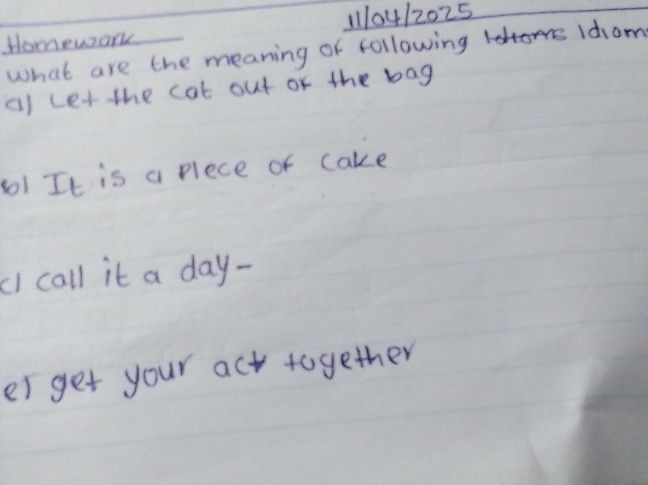 11/04/2025
Homework
What are the meaning of following Idioms Idiom
a) Let the cat out of the bag
b) It is a piece of cake
c) call it a day -
e) get your act together